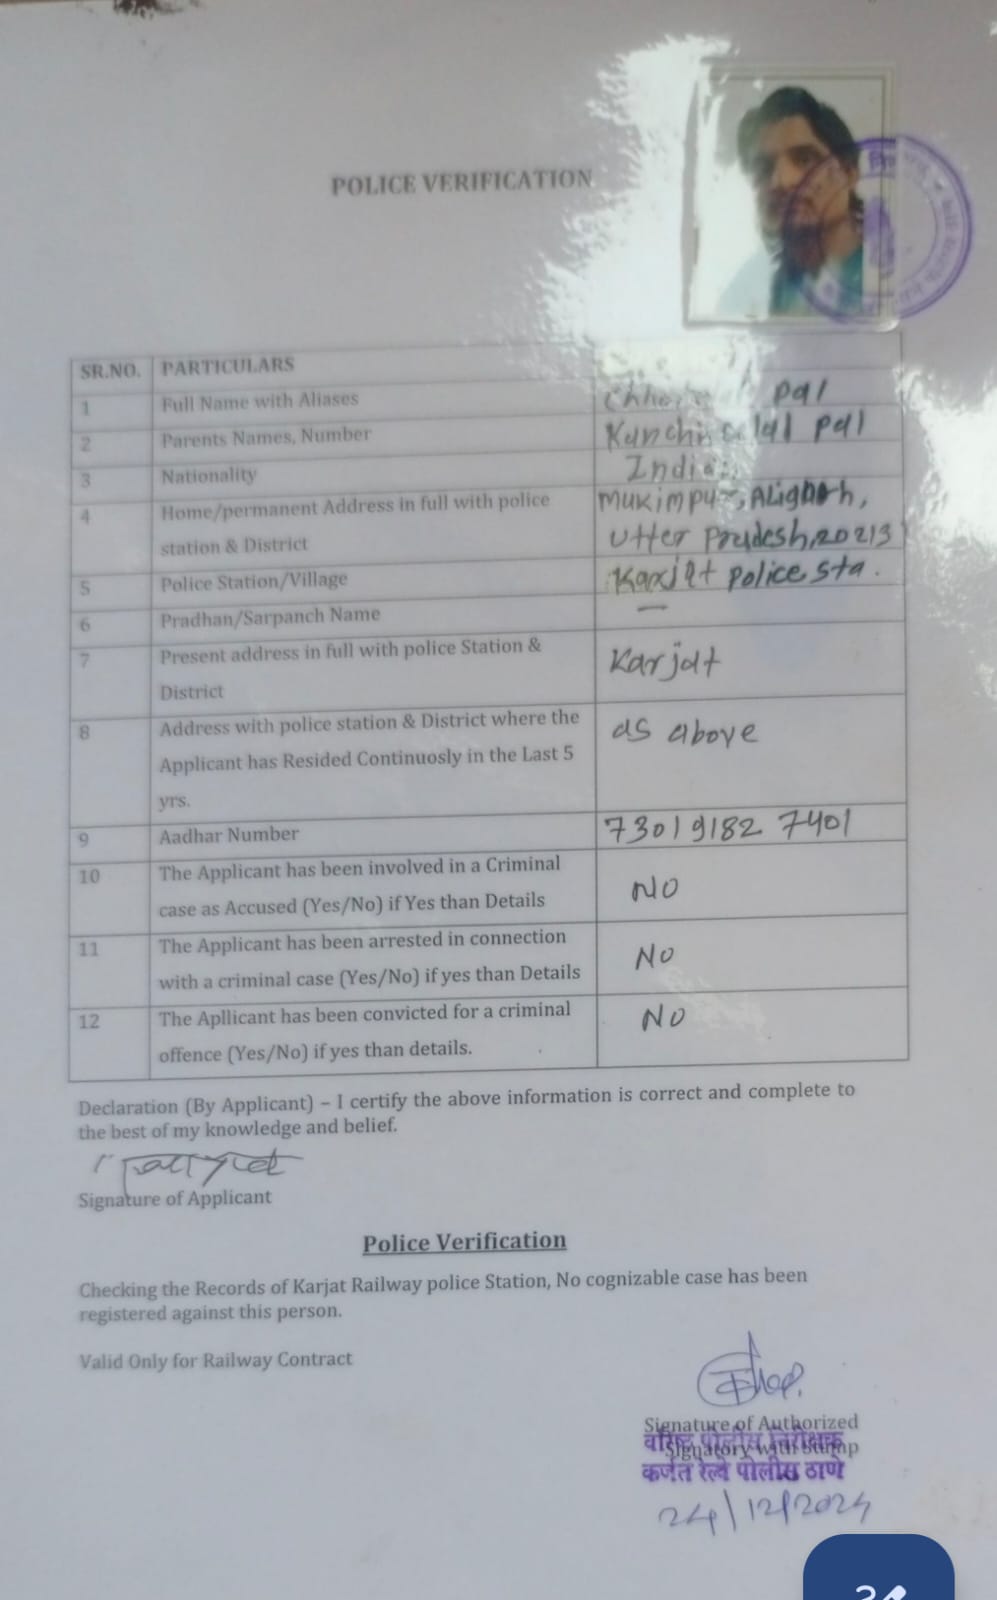 POLICE VERIFICATION
SR.NO. PARTICULARS
1 Full Name with Aliases Pal
2 Parents Names, Number Pal
3 Nationality
4 Home/permanent Address in full with police Aligarh,
station & District Utter Pradesh, 20213
5 Police Station/Village Karjat Police sta.
6 Pradhan/Sarpanch Name —
7 Present address in full with police Station & Karjat
District
8 Address with police station & District where the as above
Applicant has Resided Continuosly in the Last 5
yrs.
9 Aadhar Number 7301 9182 7401
10 The Applicant has been involved in a Criminal NO
case as Accused (Yes/No) if Yes than Details
11 The Applicant has been arrested in connection NO
with a criminal case (Yes/No) if yes than Details
12 The Apllicant has been convicted for a criminal NO
offence (Yes/No) if yes than details.
Declaration (By Applicant) – I certify the above information is correct and complete to
the best of my knowledge and belief.
Signature of Applicant
Police Verification
Checking the Records of Karjat Railway police Station, No cognizable case has been
registered against this person.
Valid Only for Railway Contract
Signature of Authorized
Signatory with Stamp
वरिष्ठ पोलीस निरीक्षक
कर्जत रेल्वे पोलीस ठाणे
24/12/2024